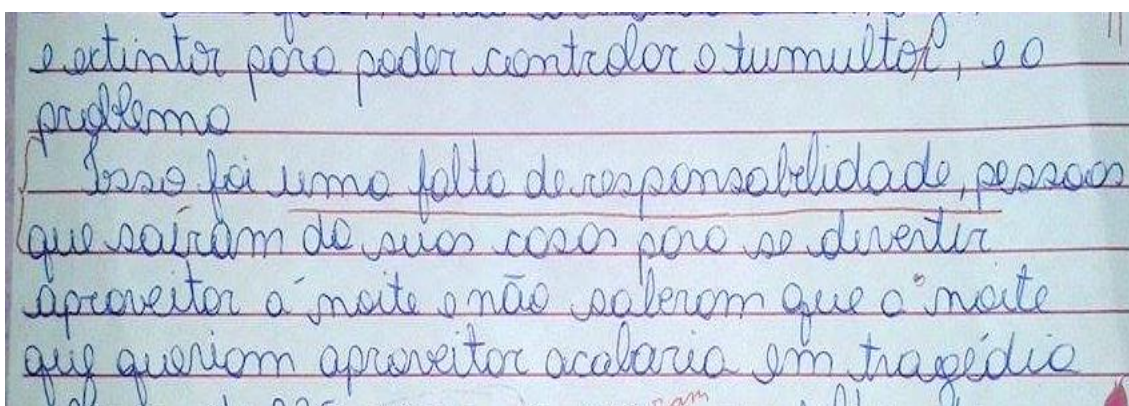 e extintor para poder controlar o tumulto, e o
problema
Isso foi uma falta de responsabelidade, pessoas
que saíram de suas casas para se divertir
aproveitar a noite e não saberam que a noite
que queriam aproveitar acabaria em tragédia
ram